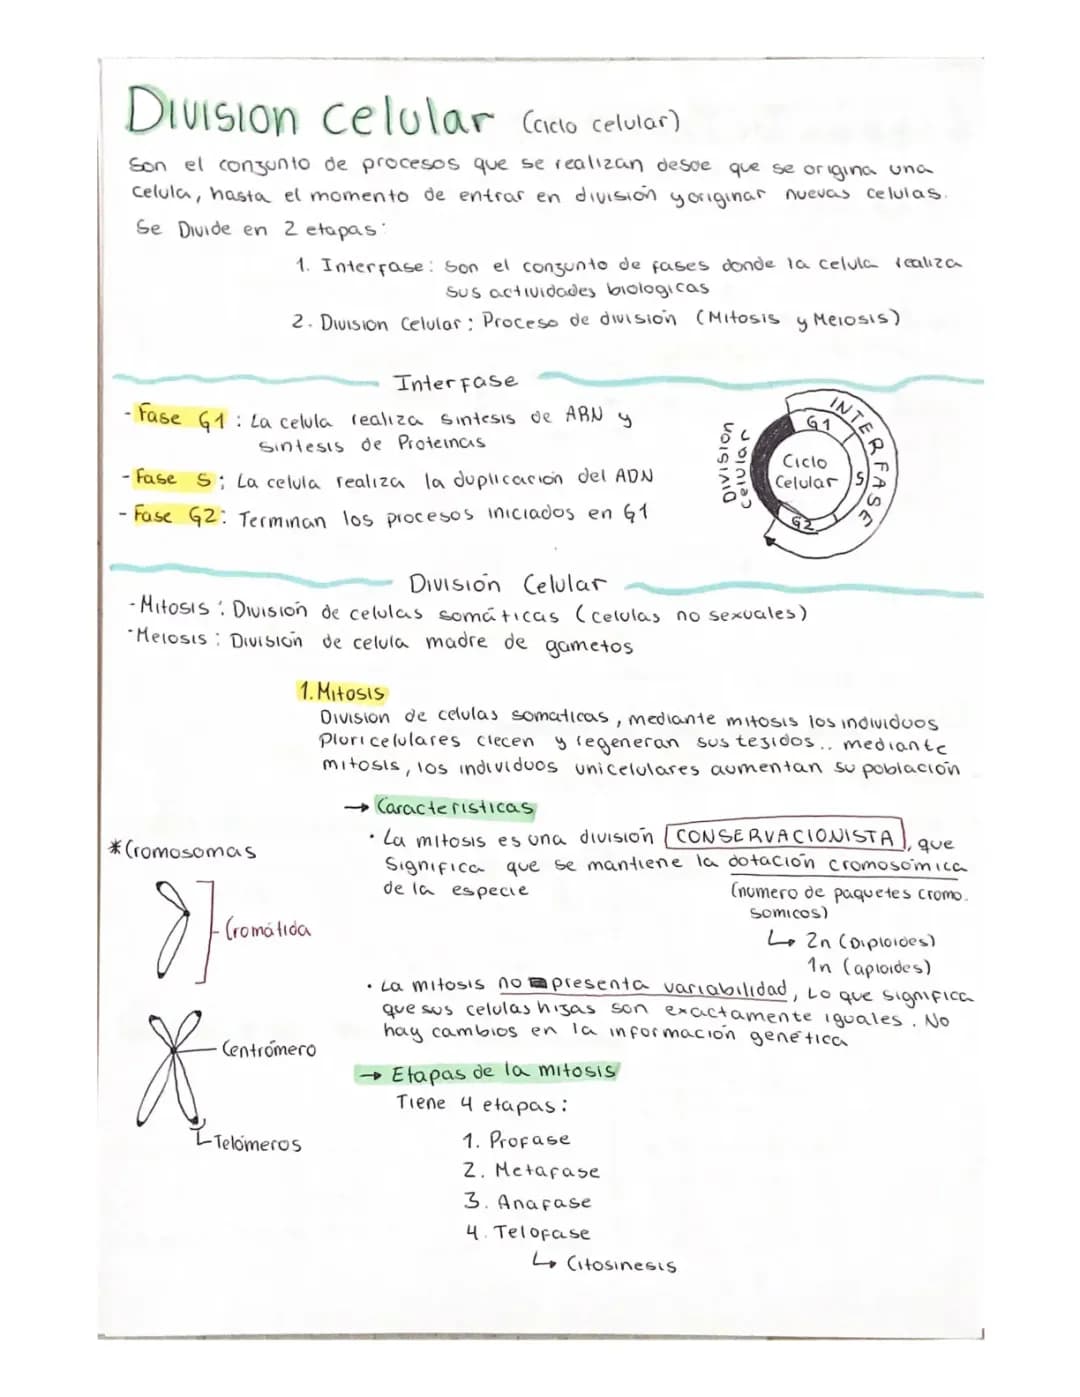 Division celular (ciclo celular)
Son el conjunto de procesos que se realizan desde que se origina una
celula, hasta el momento de entrar en división y originar nuevas celulas.
Se Divide en 2 etapas:
1. Interfase: Son el conjunto de fases donde la celula realiza
sus actividades biologicas
2. Division Celular: Proceso de división (Mitosis y Meiosis)
Interfase
- Fase G1: La celula realiza sintesis de ARN y
sintesis de Proteinas
- Fase S: La celula realiza la duplicacion del ADN
- Fase G2: Terminan los procesos iniciados en G1
División
Celular
INTERFASE
G1
S
G2
Ciclo
Celular
División Celular
- Mitosis: División de celulas somáticas (celulas no sexuales)
- Meiosis: División de celula madre de gametos
1. Mitosis
Division de celulas somaticas, mediante mitosis los individuos
Pluricelulares crecen y regeneran sus tejidos.. mediante
mitosis, los individuos unicelulares aumentan su población
→ Caracteristicas
· La mitosis es una división CONSERVACIONISTA, que
Significa que se mantiene la dotación cromosómica
de la especie
(numero de paquetes cromo.
somicos)
↳ 2n (Diploides)
1n (aploides)
· La mitosis no presenta variabilidad, Lo que significa
que sus celulas hijas son exactamente iguales. No
hay cambios en la información genética
* Cromosomas
Cromátida
Centrómero
Telómeros
→ Etapas de la mitosis
Tiene 4 etapas:
1. Profase
2. Metafase
3. Anafase
4. Telofase
↳ Citosinesis